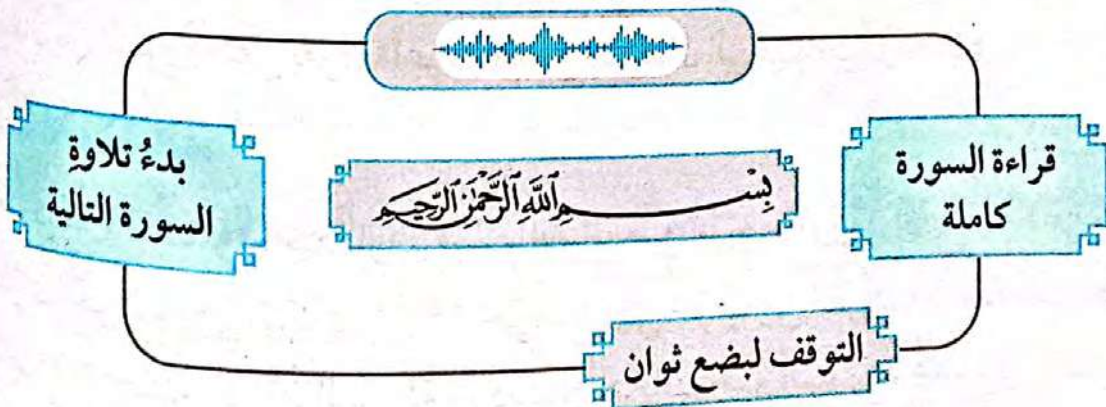 قراءة السورة
كاملة
بِسْمِ ٱللَّهِ ٱلرَّحْمَٰنِ ٱلرَّحِيمِ
بدءُ تلاوةِ
السورة التالية
التوقف لبضع ثوان